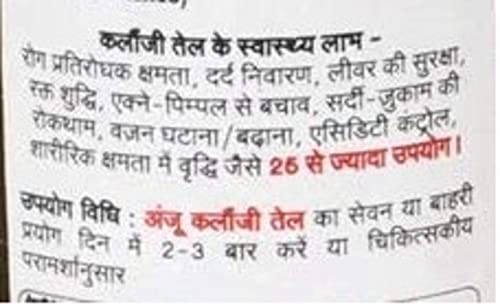 कलौंजी तेल के स्वास्थ्य लाभ -
रोग प्रतिरोधक क्षमता, दर्द निवारण, लीवर की सुरक्षा,
रक्त शुद्धि, एक्ने-पिम्पल से बचाव, सर्दी-जुकाम की
रोकथाम, वजन घटाना/बढ़ाना, एसिडिटी कंट्रोल,
शारीरिक क्षमता में वृद्धि जैसे 25 से ज्यादा उपयोग।
उपयोग विधि : अंजू कलौंजी तेल का सेवन या बाहरी
प्रयोग दिन में 2-3 बार करें या चिकित्सकीय
परामर्शानुसार